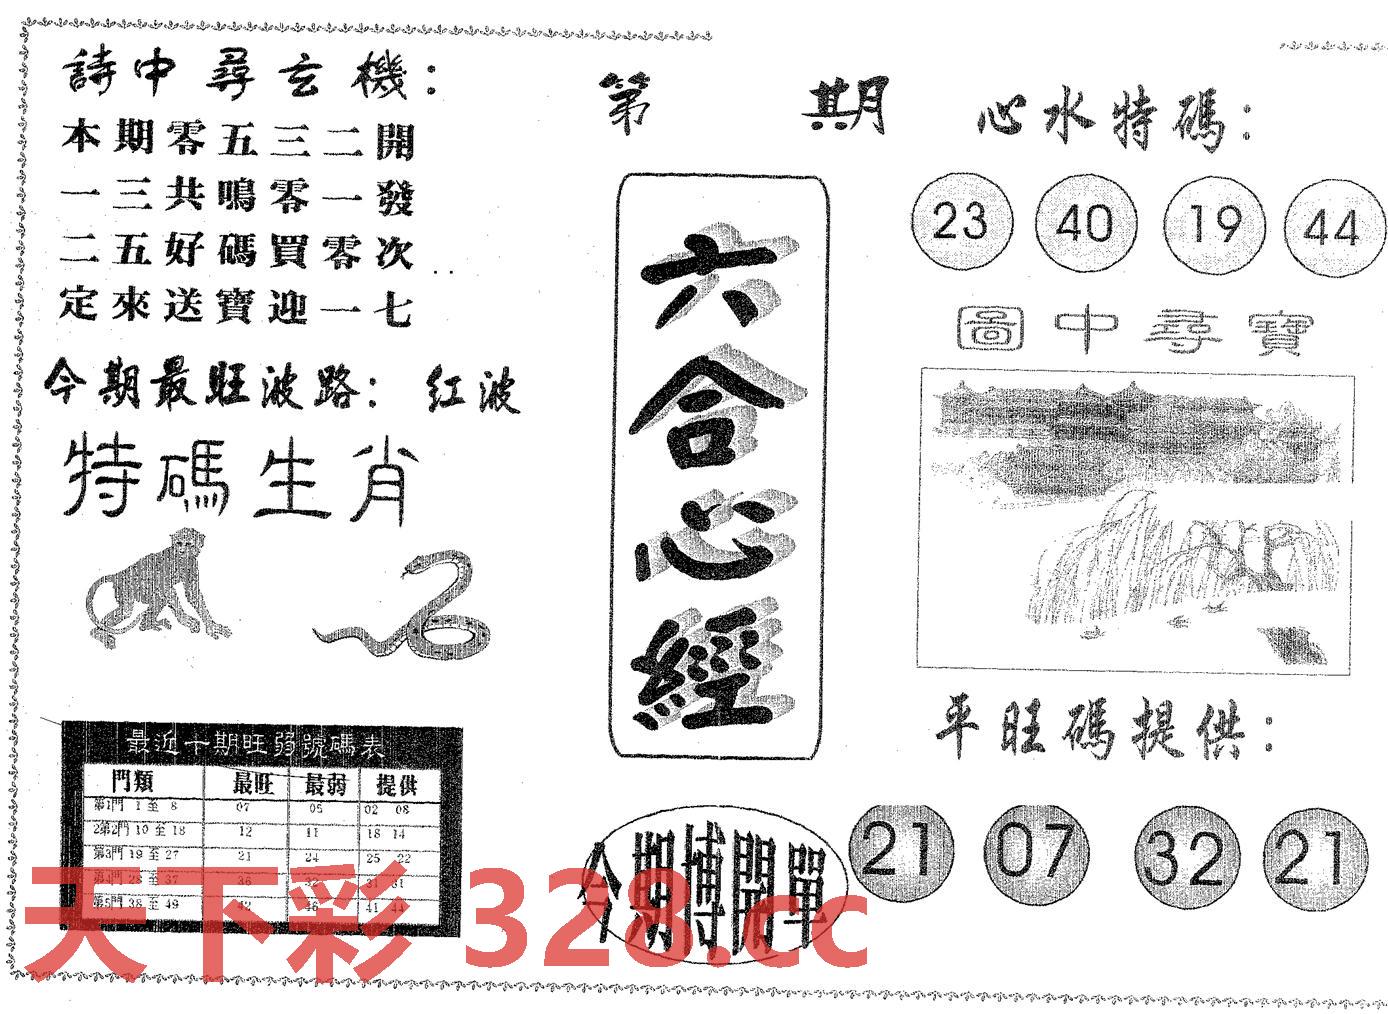 詩中尋玄機：
本期零五三二開
一三共鳴零一發
二五好碼買零次
定來送寶迎一七
今期最旺波路：紅波
特碼生肖
最近十期旺弱號碼表
門類 最旺 最弱 提供
第1門 1 至 8 07 05 02 08
2第2門 10 至 18 12 11 18 14
第3門 19 至 27 21 24 25 22
第4門 28 至 37 36 32 31 31
第5門 38 至 49 42 46 41 44
第 期
六合心經
今期博開單
心水特碼：
23 40 19 44
圖中尋寶
平旺碼提供：
21 07 32 21
天下彩 328.cc